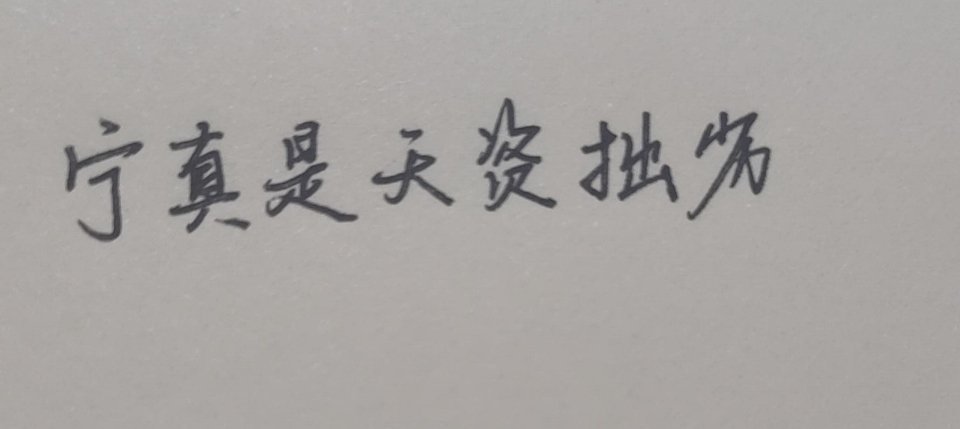 宁真是天资拙劣